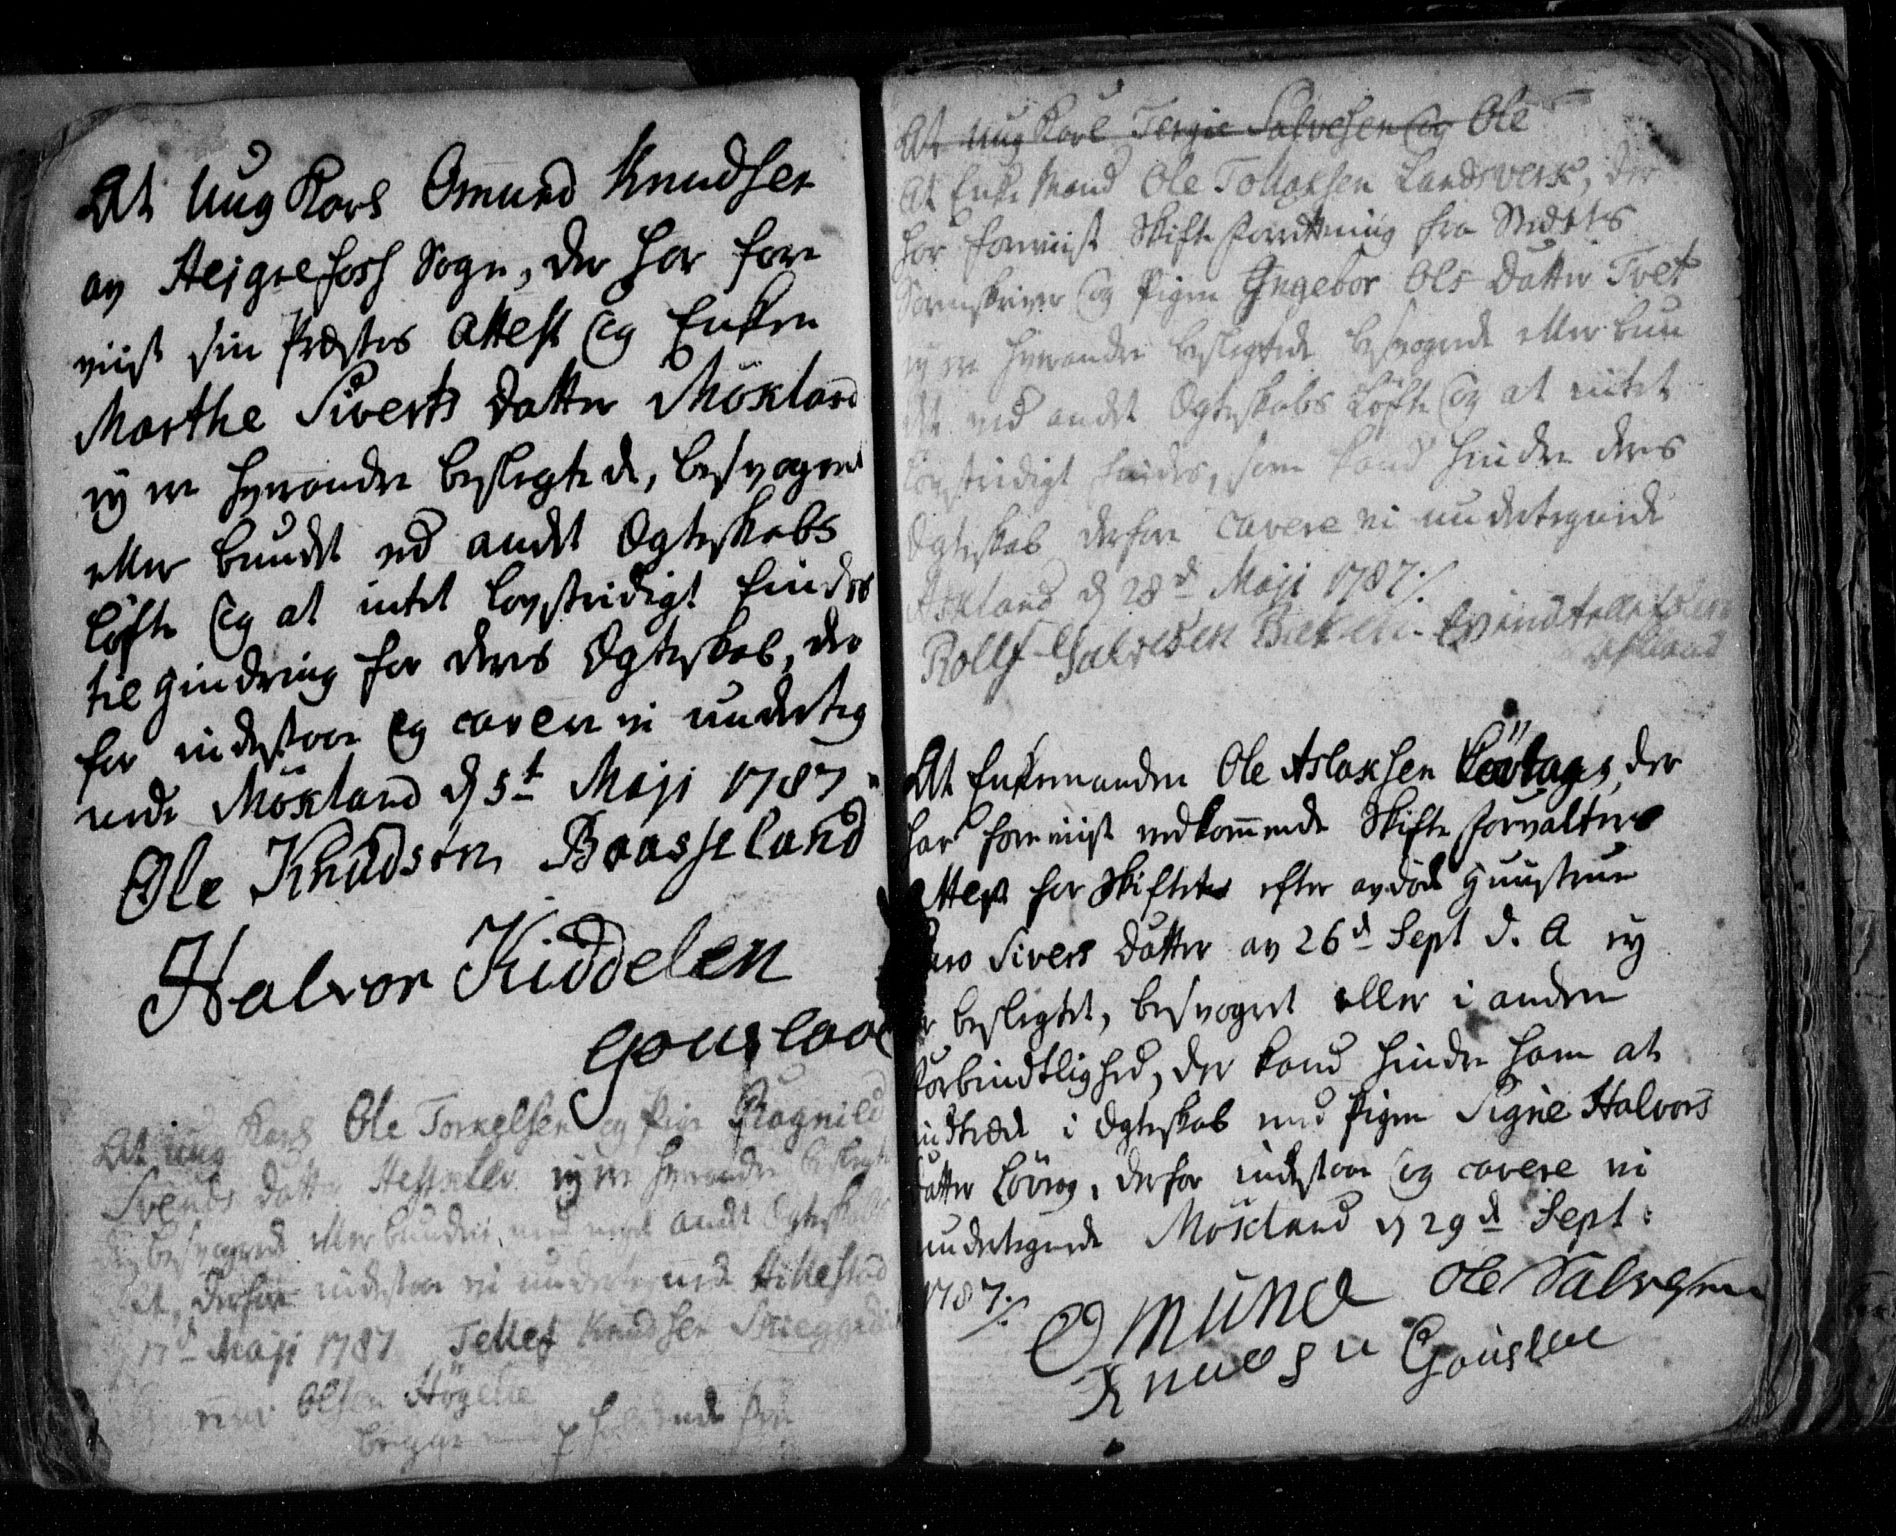 At Ung Karl Omund Knudsen
av Hejgrefoss Sogn, der har fore
viist sin Præstes Attest og Enken
Marthe Siverts Datter Möxland
ej ere hverandre beslegtede, besvogrede
eller bundet ved andet Ægteskabs
Løfte og at intet lovstridigt findes
til Hindring for deres Ægteskab, der
for indestaae og cavere vi underteg
nede Möxland d 5t Maji 1787.
Ole Knudsøn Baasseland
Halvor Kiddelsen
At ung Karl Ole Torkelsen og Pige Ragnild
Svends Datter ej ere hverandre beslegte
de, besvogrede eller bunden ved noget andet Ægteskabs
derfore indestaae vi undertegnede Hillestad
17d Maji 1787 Tellef Knudsen
Olsen Högelie
begge med
At Ung Karl Tergie Salvesen og Ole
At Enke Mand Ole Tollaksen Landsverk, der
har foreviist Skifte Forretning fra Stedets
Sorenskriver og Pigen Ingebor Ols Datter Tvet
ej ere hverandre beslegtede besvogrede eller bun
det ved andet Ægteskabs Løfte og at intet
lovstridigt findes, som kand hindre deres
Ægteskab derfore cavere vi undertegnede
Askland d 28d Maji 1787./.
Rollf Salvesen
At Enkemanden Ole Aslaksen der
har foreviist vedkommende Skifte Forvalters
Attest for Skiftet efter avdøde Huustrue
Sivers Datter av 26d Sept d. A ej
er beslegtet, besvogret eller i anden
Forbindtlighed, der kand hindre ham at
indtræde i Ægteskab med Pigen Signe Halvors
Datter Lövrag, derfor indestaae og cavere vi
undertegnede Möxland d 29d Sept:
1787./.
Omund Ole Salvesen
Knudsen